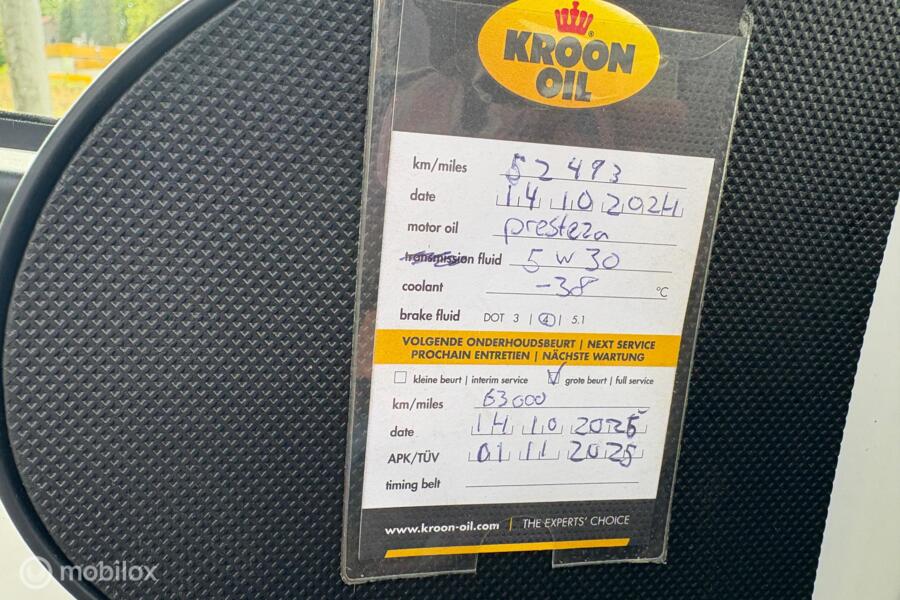 KROON
OIL
km/miles 52493
date 14 10 2024
motor oil presteza
transmission fluid 5 w 30
coolant -38 °C
brake fluid DOT 3 | 4 | 5.1
VOLGENDE ONDERHOUDSBEURT | NEXT SERVICE
PROCHAIN ENTRETIEN | NÄCHSTE WARTUNG
kleine beurt | interim service grote beurt | full service
km/miles 63000
date 14 10 2025
APK/TÜV 01 11 2025
timing belt
www.kroon-oil.com | THE EXPERTS' CHOICE
mobilox